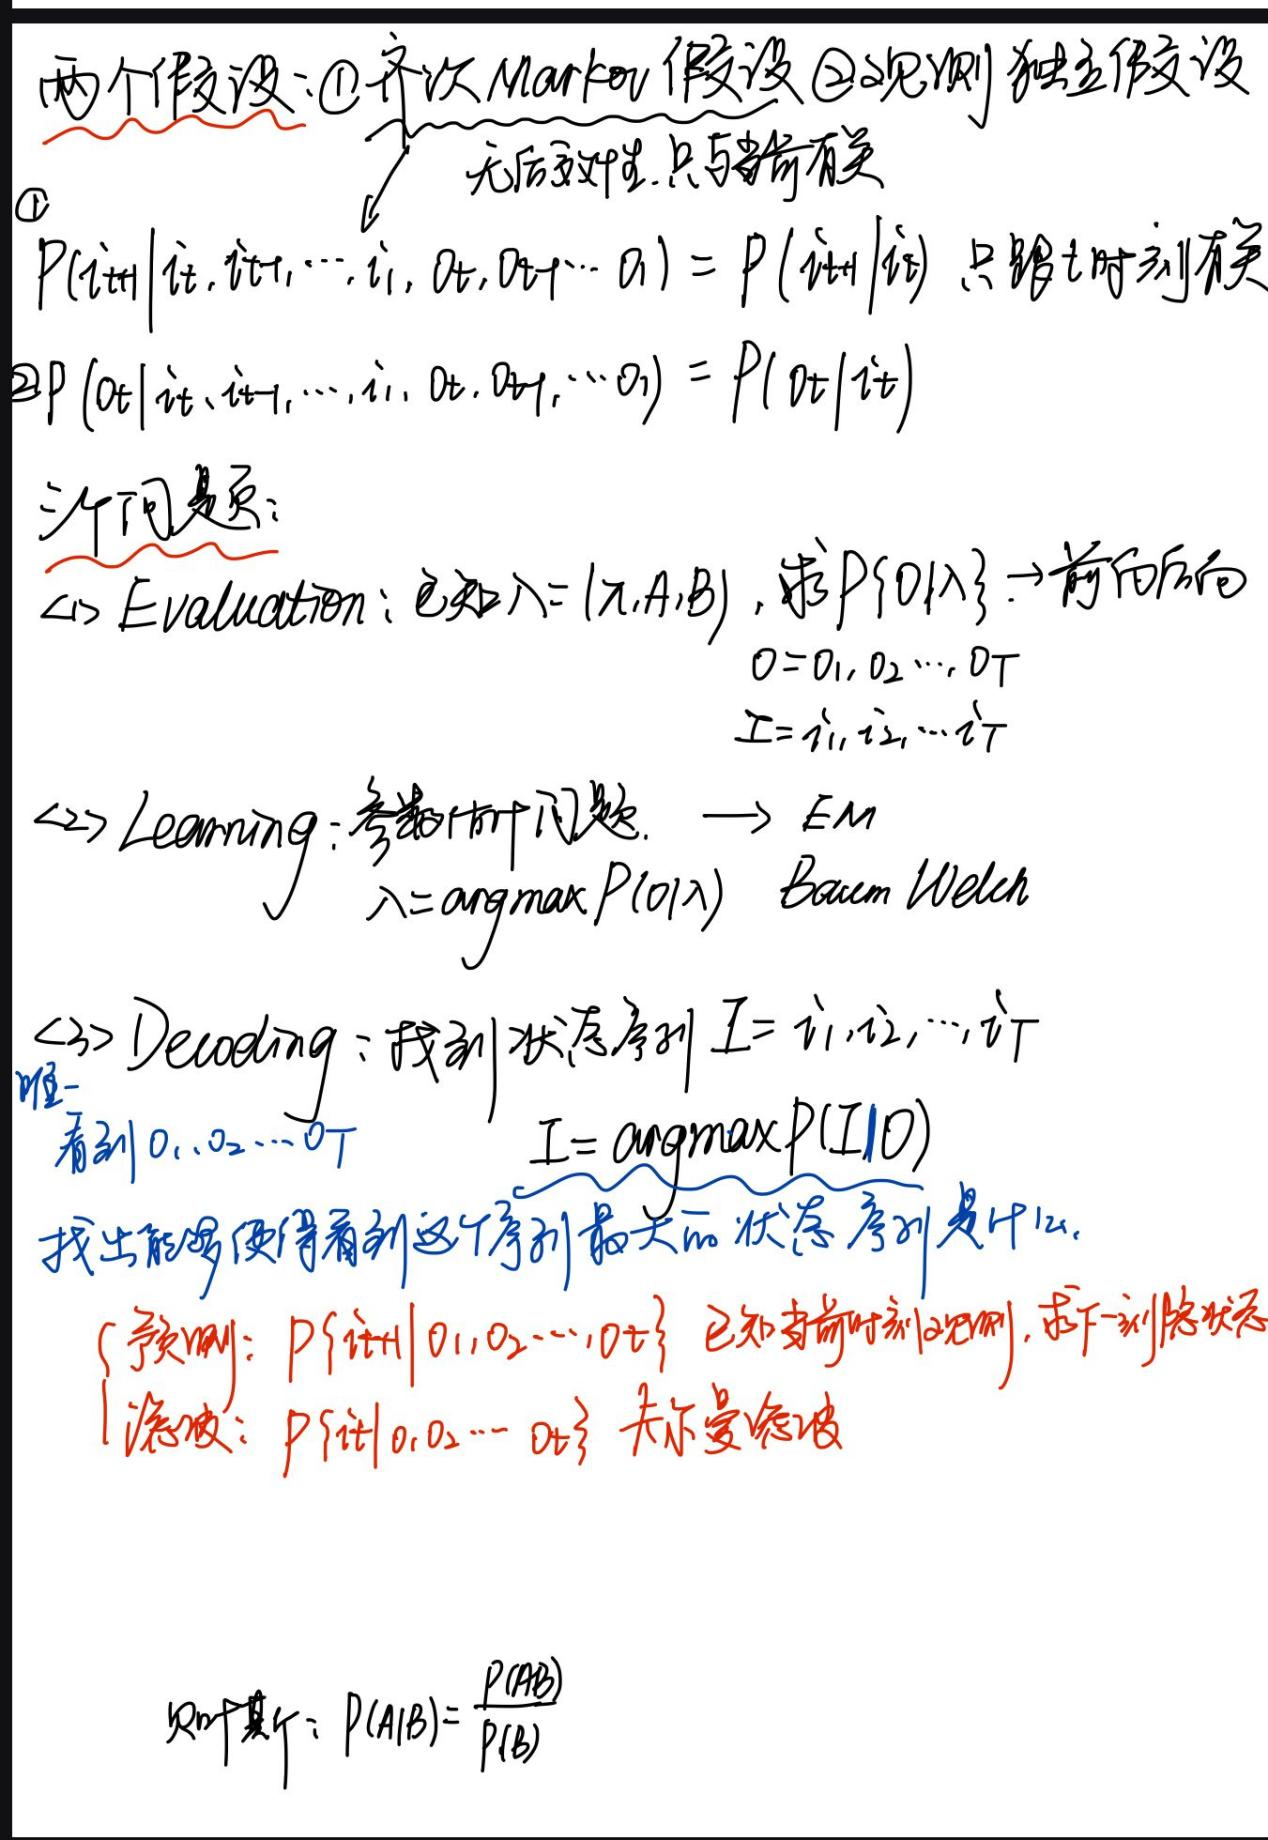 两个假设:① 齐次 Markov 假设 ②观测独立假设
无后效性.只与当前有关
①
P(i_{t+1}|i_t, i_{t-1}, ⋯, i_1, o_t, o_{t-1} ⋯ o_1) = P(i_{t+1}|i_t) 只跟t时刻有关
②P(o_t|i_t, i_{t-1}, ⋯, i_1, o_t, o_{t-1}, ⋯o_1) = P(o_t|i_t)
三个问题:
<1> Evaluation: 已知λ=(π,A,B), 求P{O|λ} → 前向后向
O=o_1, o_2 ⋯, o_T
I=i_1, i_2, ⋯i_T
<2> Learning:参数估计问题. → EM
λ=argmax P(O|λ) Baum Welch
<3> Decoding:找到状态序列 I=i_1, i_2, ⋯, i_T
唯一
看到o_1, o_2 ⋯ o_T I=argmax P(I|O)
找出能够使得看到这个序列最大的状态序列是什么.
预测: P{i_{t+1}|o_1, o_2 ⋯, o_t} 已知当前时刻观测,求下一刻隐状态
滤波: P{i_t|o_1 o_2 ⋯ o_t} 卡尔曼滤波
贝叶斯: P(A|B)=P(AB)/P(B)